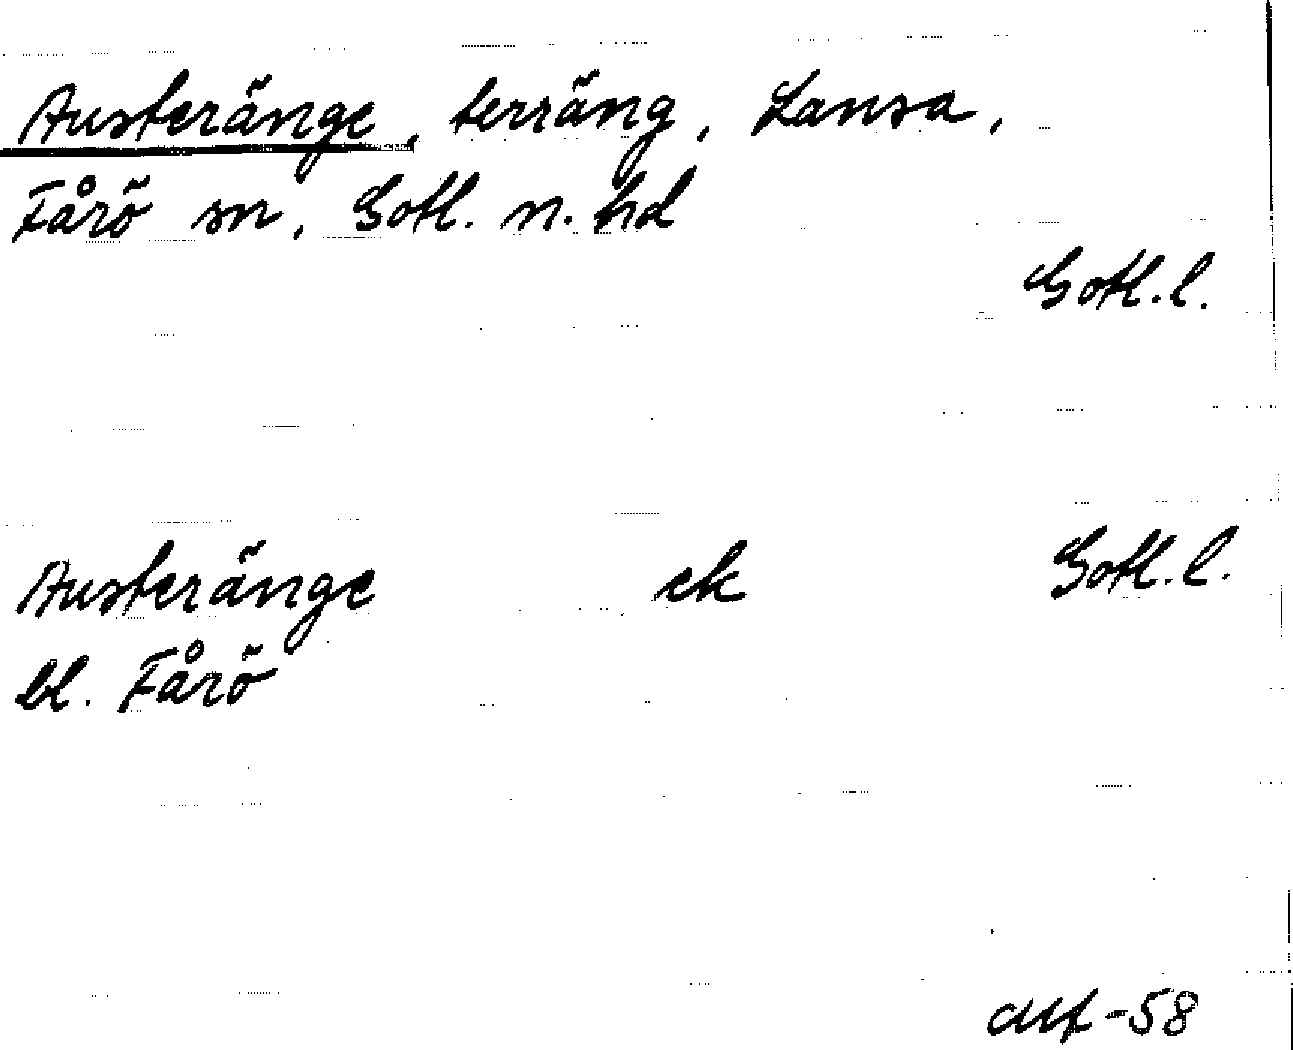 Austeränge, terräng, Lansa,
Fårö sn, Gotl. n. hd
Gotl. l.
Austeränge ek Gotl. l.
bl. Fårö
-58